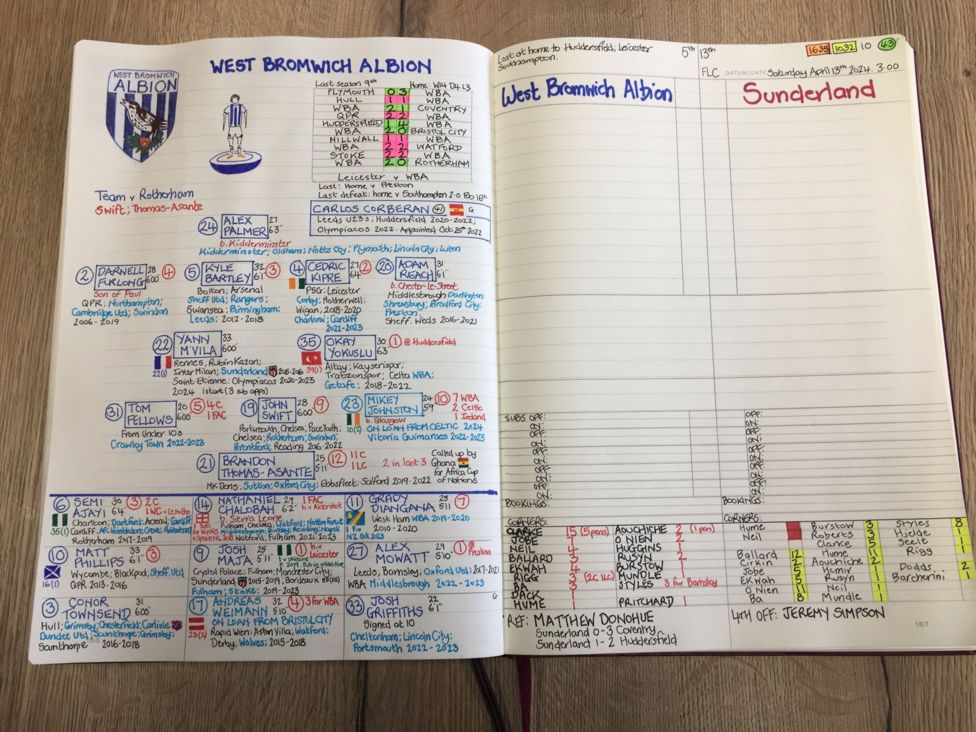 WEST BROMWICH ALBION
WEST BROMWICH
ALBION
Last season 9th Home: W14 D4 L3
PLYMOUTH 0 3 WBA
HULL 1 1 WBA
WBA 2 1 COVENTRY
QPR 2 2 WBA
HUDDERSFIELD 1 4 WBA
WBA 2 0 BRISTOL CITY
MILLWALL 1 1 WBA
WBA 2 2 WATFORD
STOKE 2 2 WBA
WBA 2 0 ROTHERHAM
Leicester v WBA
Last: Home v Preston
Last defeat: home v Southampton 2-0 Feb 16th
Team v Rotherham
Swift; Thomas-Asante
CARLOS CORBERAN 41 G
Leeds U23s; Huddersfield 2020-2022;
Olympiacos 2022. Appointed Oct 25th 2022
24 ALEX PALMER 27 6'3"
b. Kidderminster
Kidderminster; Oldham; Notts Cty; Plymouth; Lincoln City; Luton
2 DARNELL FURLONG 28 600 4
Son of Paul
QPR; Northampton;
Cambridge Utd; Swindon
2006-2019
5 KYLE BARTLEY 32 61 3
Bolton; Arsenal
Sheff Utd; Rangers;
Swansea; Birmingham;
Leeds; 2012-2018
4 CEDRIC KIPRE 27 64 2
PSG; Leicester
Corby; Motherwell;
Wigan; 2018-2020
Charleroi; Cardiff
2022-2023
20 ADAM REACH 31 61
b. Chester-le-Street
Middlesbrough Darlington
Shrewsbury; Bradford City;
Preston;
Sheff Weds 2016-2021
22 YANN M'VILA 33 600
Rennes, Rubin Kazan;
22() Inter Milan; Sunderland 2015-2016
Saint Etienne; Olympiacos 2020-2023
2024 1 start (3 sub apps)
35 OKAY YOKUSLU 30 63 1 @ Huddersfield
Altay; Kayserispor;
39(1) Trabzonspor; Celta WBA;
Getafe; 2018-2022
31 TOM FELLOWS 20 600 5 4C
1 FAC
From Under 10s
Crawley Town 2022-2023
19 JOHN SWIFT 28 600 9
Portsmouth, Chelsea, Pace Youth;
Chelsea; Rotherham; Swindon;
Brentford; Reading 2016-2022
23 MIKEY JOHNSTON 24 59 10 7 WBA
2 Celtic
1 Ireland
b. Glasgow
ON LOAN FROM CELTIC 2024
Vitoria Guimaraes 2022-2023
21 BRANDON THOMAS-ASANTE 25 511 12 11C
1LC
2 in last 3
Called up by
Ghana
for Africa Cup
of Nations
MK Dons; Sutton; Oxford City; Ebbsfleet; Salford 2019-2022
6 SEMI AJAYI 30 64 3 2C
1 WC v Lesotho
Charlton; Dartford; Arsenal; Cardiff
35(1) Cardiff; AFC Wimbledon; Crewe; Rotherham
Rotherham 2017-2019
14 NATHANIEL CHALOBAH 29 62 1 FAC
h v Aldershot
b. Sierra Leone
Watford, Fulham 2022-2023
11 GRADY DIANGANA 25 511 7
West Ham WBA 2019-2020
2010-2020
10 MATT PHILLIPS 33 61 3
16(1) Wycombe; Blackpool; Sheff Utd
QPR 2013-2016
9 JOSH MAJA 25 511 1 h v
Leicester
Crystal Palace; Fulham; Manchester City;
Sunderland 2015-2019; Bordeaux
Fulham; Stoke; 2019-2023
27 ALEX MOWATT 29 510 1 @ Preston
Leeds, Barnsley, Oxford Utd; 2017-2021
WBA Middlesbrough 2022-2023
3 CONOR TOWNSEND 31 600
Hull; Grimsby; Chesterfield; Carlisle
Dundee Utd; Scunthorpe; Grimsby;
Scunthorpe 2016-2018
17 ANDREAS WEIMANN 32 510 4 3 for WBA
ON LOAN FROM BRISTOL CITY
Rapid Wien; Aston Villa; Watford;
Derby; Wolves; 2015-2018
33 JOSH GRIFFITHS 22 61 G
Signed at 10
Cheltenham; Lincoln City;
Portsmouth 2022-2023
Last at home to Huddersfield; Leicester
Southampton.
5th 13th
1635 1032 10 43
FLC DATUM/DATE Saturday April 13th 2024 3.00
West Bromwich Albion
Sunderland
SUBS OFF: OFF:
ON: ON:
OFF: OFF:
ON: ON:
OFF: OFF:
ON: ON:
OFF: OFF:
ON: ON:
OFF: OFF:
ON: ON:
BOOKINGS: BOOKINGS:
CORNERS: CORNERS:
CLARKE 15 (5 pens) AOUCHICHE 2 (1 pen)
JOBE O'NIEN
NEIL 4 HUGGINS
BALLARD RUSYN 2
EKWAH 4 BURSTOW 1
RIGG (2C 1LC) MUNDLE
BA STYLES 3 for Barnsley
DACK
HUME 1 PRITCHARD 1
Hume Burstow 3 Styles 8
Neil Roberts Hjelde
Clarke Seelt
Ballard 12 Hume 11 Rigg
Cirkin Aouchiche
Jobe Hemir Dodds 2
Ekwah Rusyn Barcherini
O'Nien Neil
Bo Mundle
REF: MATTHEW DONOHUE
Sunderland 0-3 Coventry
Sunderland 1-2 Huddersfield
4TH OFF: JEREMY SIMPSON
187